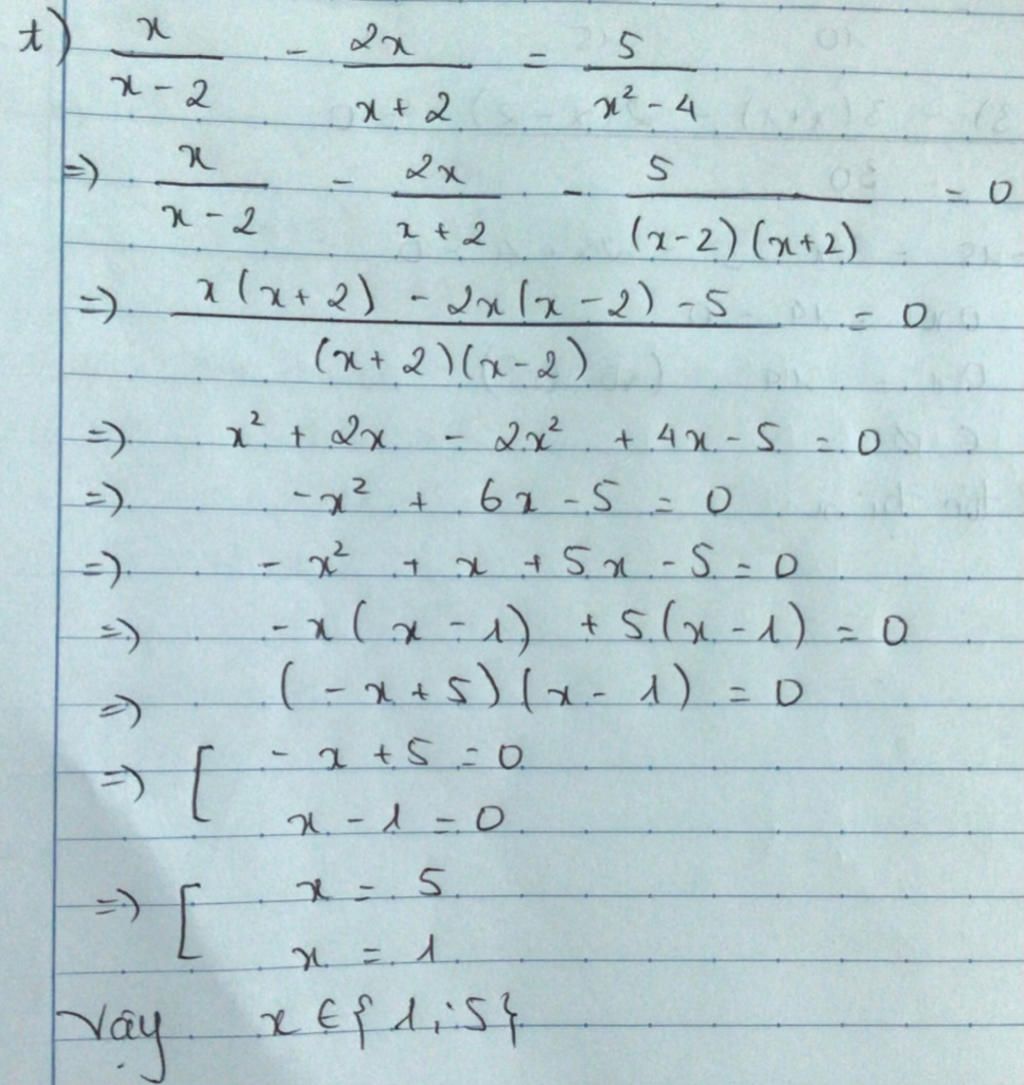 t) x/(x - 2) - 2x/(x + 2) = 5/(x² - 4)
=) x/(x - 2) - 2x/(x + 2) - 5/((x-2)(x+2)) = 0
=) (x(x + 2) - 2x(x - 2) - 5)/((x + 2)(x - 2)) = 0
=) x² + 2x - 2x² + 4x - 5 = 0
=) -x² + 6x - 5 = 0
=) - x² + x + 5x - 5 = 0
=) - x(x - 1) + 5(x - 1) = 0
=) (- x + 5)(x - 1) = 0
=) [ - x + 5 = 0
x - 1 = 0
=) [ x = 5
x = 1
Vậy x ∈ {1; 5}